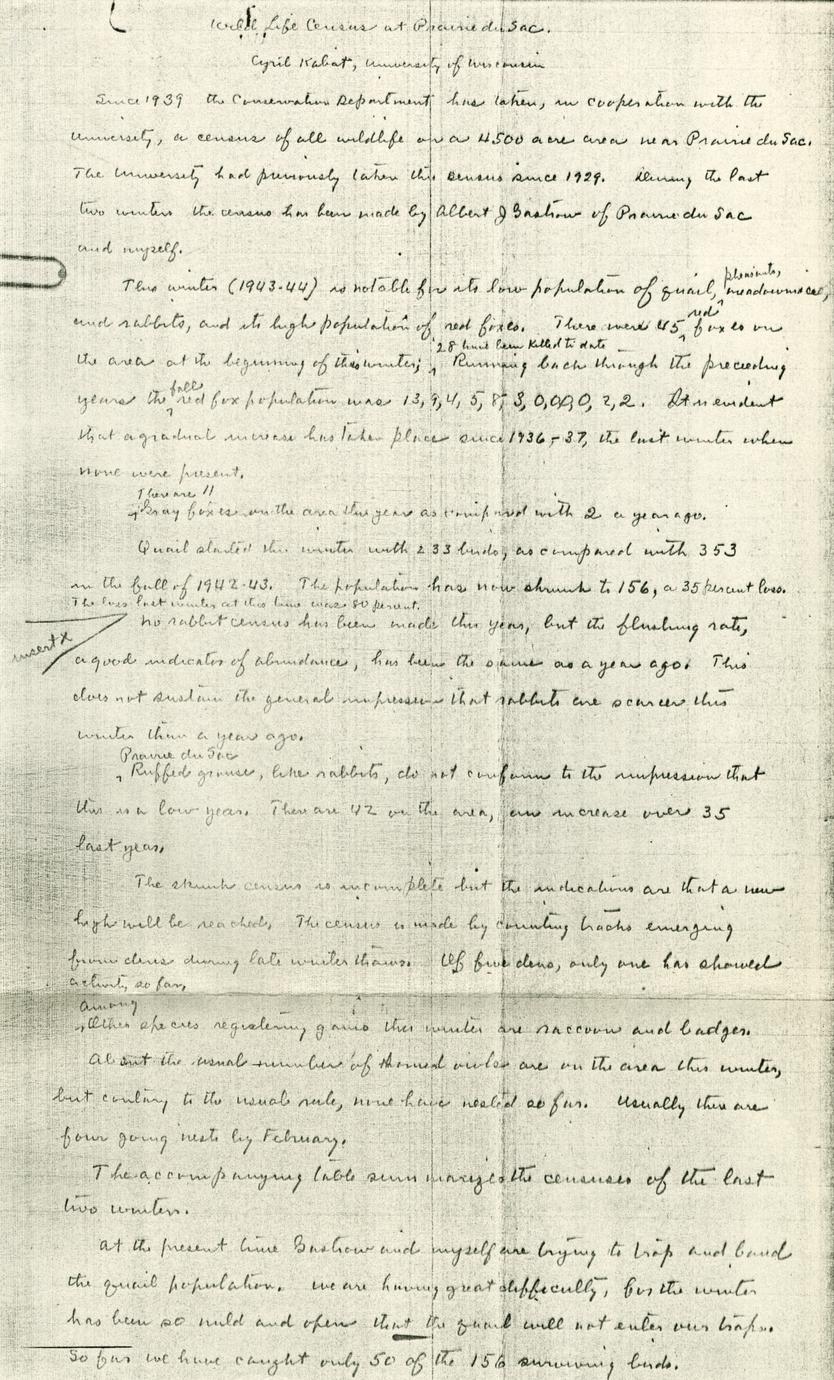 Wild Life Census at Prairie du Sac.
Cyril Kabat, University of Wisconsin
Since 1939 the Conservation Department has taken, in cooperation with the
University, a census of all wildlife on a 4500 acre area near Prairie du Sac.
The University had previously taken this census since 1929. During the last
two winters the census has been made by Albert J Gastrow of Prairie du Sac
and myself.
pheasants,
This winter (1943-44) is notable for its low population of quail, meadowmice,
red
and rabbits, and its high population of red foxes. There were 45 foxes on
28 have been killed to date
the area at the beginning of this winter; Running back through the preceeding
fall
years the red fox population was 13, 9, 4, 5, 8, 3, 0, 0, 0, 0, 2, 2. It is evident
that a gradual increase has taken place since 1936-37, the last winter when
none were present.
There are 11
Gray foxes on the area this year as compared with 2 a year ago.
Quail started the winter with 233 birds, as compared with 353
in the fall of 1942-43. The population has now shrunk to 156, a 35 percent loss.
The loss last winter at this time was 80 percent.
insert x
No rabbit census has been made this year, but the flushing rate,
a good indicator of abundance, has been the same as a year ago. This
does not sustain the general impression that rabbits are scarcer this
winter than a year ago.
Prairie du Sac
Ruffed grouse, like rabbits, do not conform to the impression that
this is a low year. There are 42 on the area, an increase over 35
last year.
The skunk census is incomplete but the indications are that a new
high will be reached. The census is made by counting tracks emerging
from dens during late winter thaws. Of five dens, only one has showed
activity so far.
among
Other species registering gains this winter are raccoon and badger.
About the usual number of horned owls are on the area this winter,
but contary to the usual rule, none have nested so far. Usually there are
four going nests by February.
The accompanying table summarizes the censuses of the last
two winters.
At the present time Gastrow and myself are trying to trap and band
the quail population. We are having great difficulty, for the winter
has been so mild and open that the quail will not enter our traps.
So far we have caught only 50 of the 156 surviving birds.